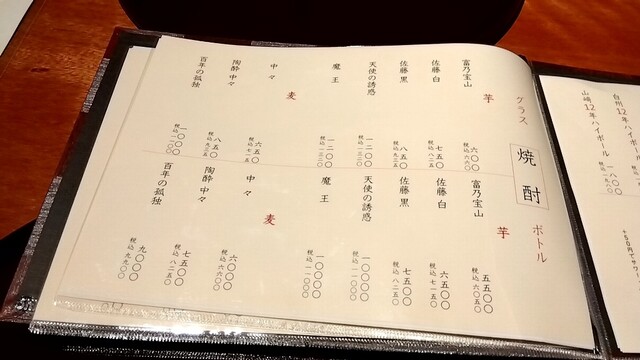 焼酎
グラス
芋
富乃宝山
六〇〇
税込六六〇
佐藤白
七五〇
税込八二五
佐藤黒
八五〇
税込九三五
天使の誘惑
一二〇〇
税込一三二〇
魔王
一二〇〇
税込一三二〇
麦
中々
六五〇
税込七一五
陶酔中々
八五〇
税込九三五
百年の孤独
一〇〇〇
税込一一〇〇
ボトル
芋
富乃宝山
五五〇〇
税込六〇五〇
佐藤白
六五〇〇
税込七一五〇
佐藤黒
七五〇〇
税込八二五〇
天使の誘惑
一〇〇〇〇
税込一一〇〇〇
魔王
一〇〇〇〇
税込一一〇〇〇
麦
中々
六〇〇〇
税込六六〇〇
陶酔中々
七五〇〇
税込八二五〇
百年の孤独
九〇〇〇
税込九九〇〇
白州12年ハイボール
山崎12年ハイボール